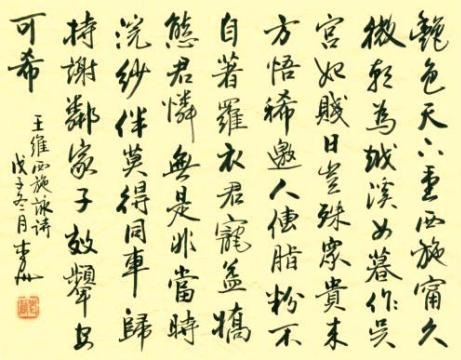 艷色天下重西施甯久
微朝為越溪女暮作吳
宮妃賤日豈殊眾貴來
方悟稀邀人傅脂粉不
自著羅衣君寵益嬌
態君憐無是非當時
浣紗伴莫得同車歸
持謝鄰家子效顰安
可希
王維西施詠詩
戊子冬月